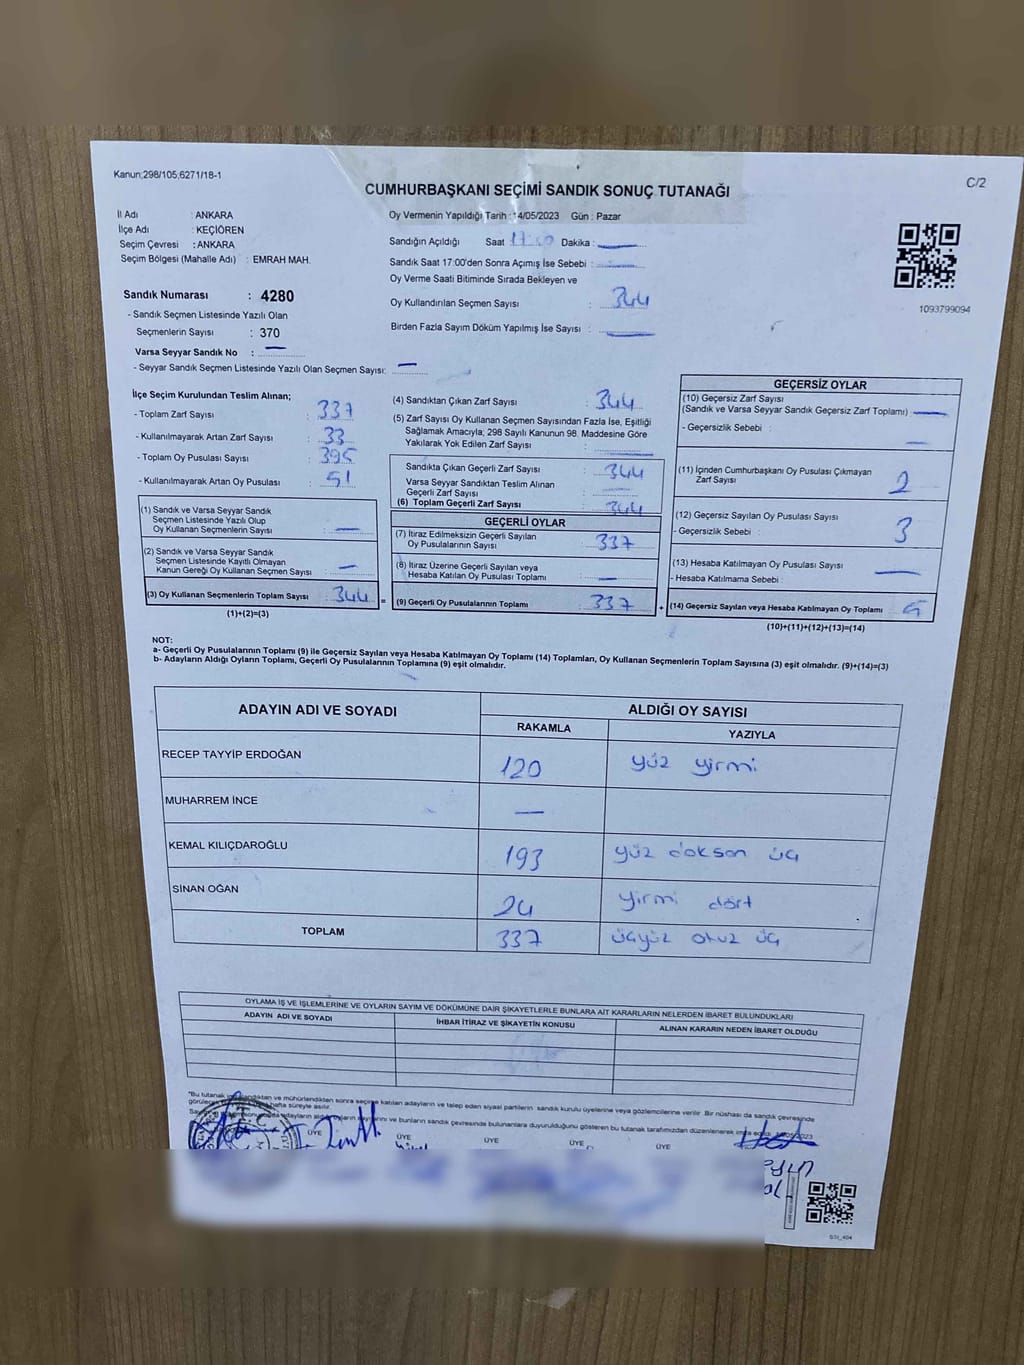 Kanun;298/105;6271/18-1
C/2
CUMHURBAŞKANI SEÇİMİ SANDIK SONUÇ TUTANAĞI
İl Adı : ANKARA
İlçe Adı : KEÇİÖREN
Seçim Çevresi : ANKARA
Seçim Bölgesi (Mahalle Adı) : EMRAH MAH.
Oy Vermenin Yapıldığı Tarih : 14/05/2023 Gün : Pazar
Sandığın Açıldığı Saat 17:00 Dakika :
Sandık Saat 17:00'den Sonra Açımış İse Sebebi :
Oy Verme Saati Bitiminde Sırada Bekleyen ve
Oy Kullandırılan Seçmen Sayısı : 344
Birden Fazla Sayım Döküm Yapılmış İse Sayısı :
1093799094
Sandık Numarası : 4280
- Sandık Seçmen Listesinde Yazılı Olan
Seçmenlerin Sayısı : 370
Varsa Seyyar Sandık No : —
- Seyyar Sandık Seçmen Listesinde Yazılı Olan Seçmen Sayısı: —
İlçe Seçim Kurulundan Teslim Alınan;
- Toplam Zarf Sayısı : 337
- Kullanılmayarak Artan Zarf Sayısı : 33
- Toplam Oy Pusulası Sayısı : 395
- Kullanılmayarak Artan Oy Pusulası : 51
(1) Sandık ve Varsa Seyyar Sandık
Seçmen Listesinde Yazılı Olup
Oy Kullanan Seçmenlerin Sayısı : —
(2) Sandık ve Varsa Seyyar Sandık
Seçmen Listesinde Kayıtlı Olmayan
Kanun Gereği Oy Kullanan Seçmen Sayısı : —
(3) Oy Kullanan Seçmenlerin Toplam Sayısı : 344
(1)+(2)=(3)
(4) Sandıktan Çıkan Zarf Sayısı : 344
(5) Zarf Sayısı Oy Kullanan Seçmen Sayısından Fazla İse, Eşitliği
Sağlamak Amacıyla; 298 Sayılı Kanunun 98. Maddesine Göre
Yakılarak Yok Edilen Zarf Sayısı :
Sandıkta Çıkan Geçerli Zarf Sayısı : 344
Varsa Seyyar Sandıktan Teslim Alınan
Geçerli Zarf Sayısı :
(6) Toplam Geçerli Zarf Sayısı : 344
GEÇERLİ OYLAR
(7) İtiraz Edilmeksizin Geçerli Sayılan
Oy Pusulalarının Sayısı : 337
(8) İtiraz Üzerine Geçerli Sayılan veya
Hesaba Katılan Oy Pusulası Toplamı : —
(9) Geçerli Oy Pusulalarının Toplamı : 337
GEÇERSİZ OYLAR
(10) Geçersiz Zarf Sayısı
(Sandık ve Varsa Seyyar Sandık Geçersiz Zarf Toplamı) : —
- Geçersizlik Sebebi : —
(11) İçinden Cumhurbaşkanı Oy Pusulası Çıkmayan
Zarf Sayısı : 2
(12) Geçersiz Sayılan Oy Pusulası Sayısı : 3
- Geçersizlik Sebebi :
(13) Hesaba Katılmayan Oy Pusulası Sayısı : —
- Hesaba Katılmama Sebebi :
(14) Geçersiz Sayılan veya Hesaba Katılmayan Oy Toplamı : 5
(10)+(11)+(12)+(13)=(14)
NOT:
a- Geçerli Oy Pusulalarının Toplamı (9) ile Geçersiz Sayılan veya Hesaba Katılmayan Oy Toplamı (14) Toplamları, Oy Kullanan Seçmenlerin Toplam Sayısına (3) eşit olmalıdır. (9)+(14)=(3)
b- Adayların Aldığı Oyların Toplamı, Geçerli Oy Pusulalarının Toplamına (9) eşit olmalıdır.
ADAYIN ADI VE SOYADI ALDIĞI OY SAYISI
RAKAMLA YAZIYLA
RECEP TAYYİP ERDOĞAN 120 yüz yirmi
MUHARREM İNCE —
KEMAL KILIÇDAROĞLU 193 yüz doksan üç
SİNAN OĞAN 24 yirmi dört
TOPLAM 337 üçyüz otuz üç
OYLAMA İŞ VE İŞLEMLERİNE VE OYLARIN SAYIM VE DÖKÜMÜNE DAİR ŞİKAYETLERLE BUNLARA AİT KARARLARIN NELERDEN İBARET BULUNDUKLARI
ADAYIN ADI VE SOYADI İHBAR İTİRAZ VE ŞİKAYETİN KONUSU ALINAN KARARIN NEDEN İBARET OLDUĞU
*Bu tutanak imzalandıktan ve mühürlendikten sonra seçime katılan adayların ve talep eden siyasi partilerin sandık kurulu üyelerine veya gözlemcilerine verilir. Bir nüshası da sandık çevresinde
hafta süreyle asılır.
ve bunların sandık çevresinde bulunanlara duyurulduğunu gösteren bu tutanak tarafımızdan düzenlenerek imza edildi.
ÜYE ÜYE ÜYE ÜYE ÜYE